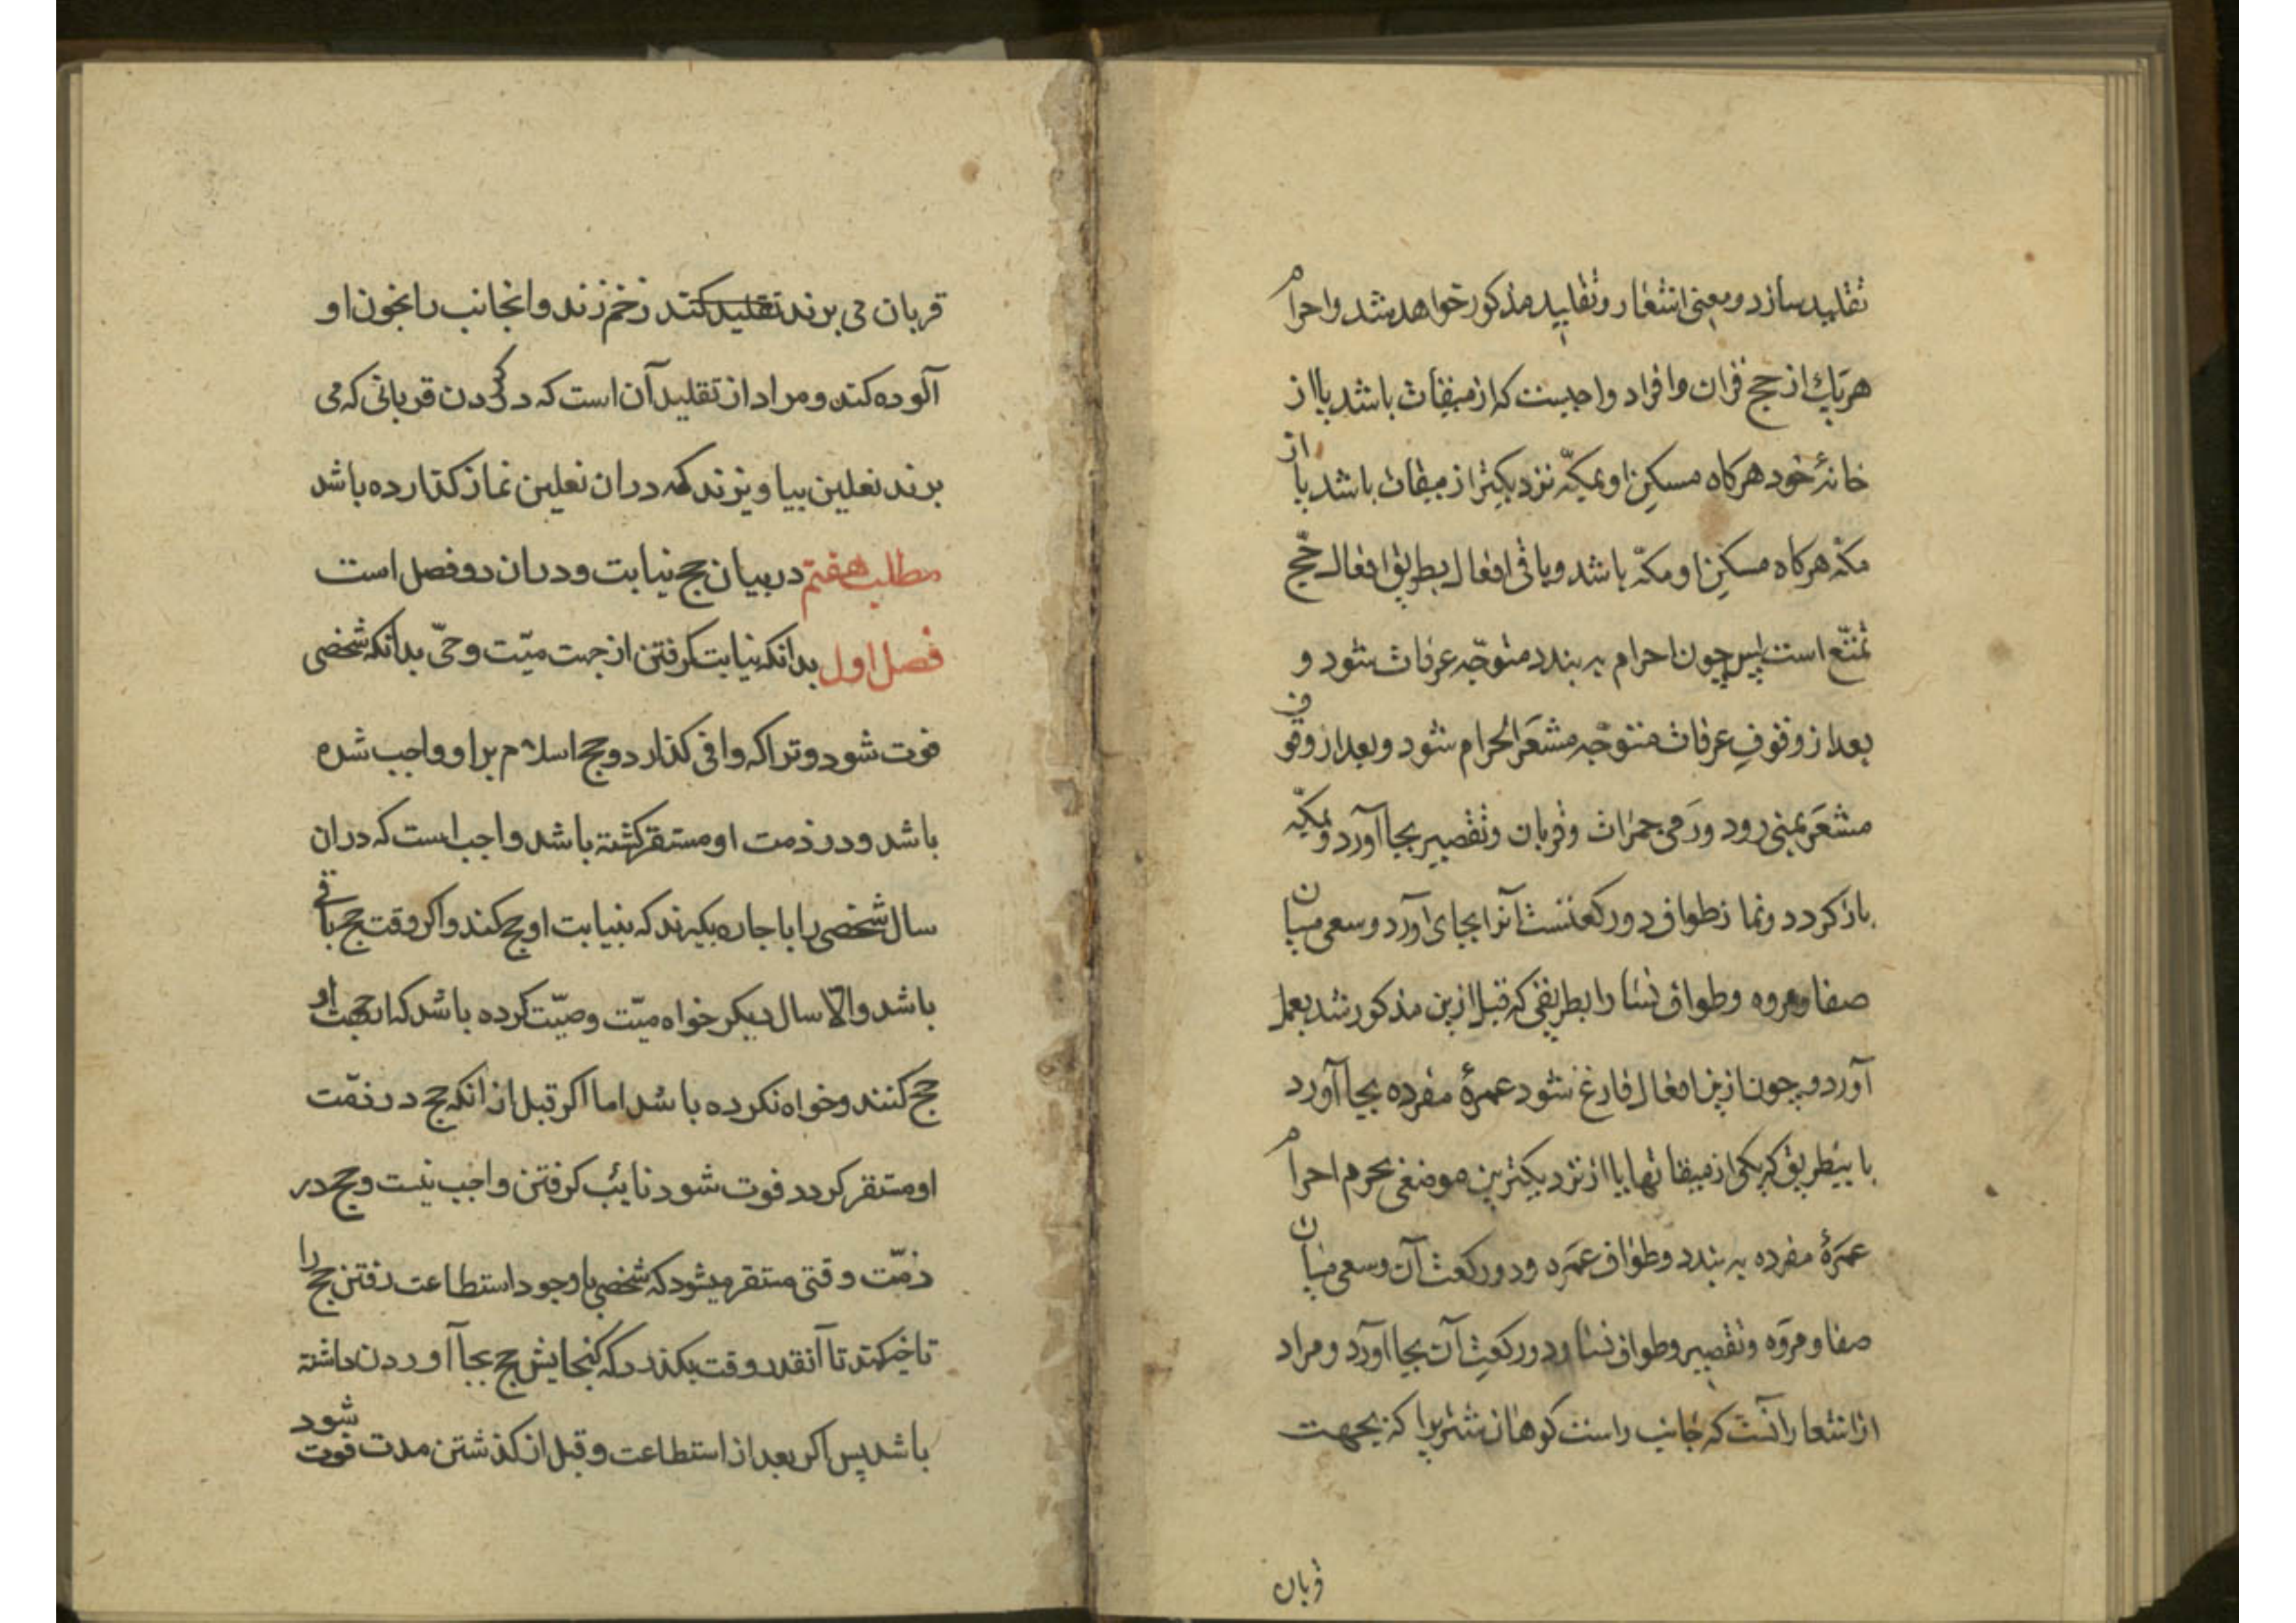 تقلید سازد و معنی اشعار و تقلید مذکور خواهد شد و احرام
هر یك از حج قران و افراد واجبست که از میقات باشد یا از
خانهٔ خود هرکاه مسکن او بمکّه نزدیکتر از میقات باشد یا از
مکّه هرکاه مسکن او مکّه باشد و باقی افعال بطریق افعال حجّ
تمتّع است پس چون احرام به بندد متوجّه عرفات شود و
بعد از وقوفِ عرفات متوجّه مشعَر الحرام شود و بعد از وقوف
مشعَر بمنی رود و رَمی جمرات و قربان و تقصیر بجا آورد و بمکّه
باز کردد و نماز طواف دو رکعتست آنرا بجای آورد و سعی میان
صفا و مروه و طواف نسا را بطریقی که قبل ازین مذکور شد بعمل
آورد و چون ازین افعال فارغ شود عمرهٔ مفرده بجا آورد
باینطریق که یکی از میقاتها یا از نزدیکترین موضعی بحرم احرام
عمرَهٔ مفرده به بندد و طواف عمَره و دو رکعت آن و سعی میان
صفا و مروَه و تقصیر و طواف نسا و دو رکعتِ آن بجا آورد و مراد
از اشعار آنست که جانب راست کوهان شتریرا که بجهت
قربان
قربان می برند تقلید کنند زخم زنند و انجانب را بخون او
آلوده کنند و مراد از تقلید آن است که در کردن قربانی که می
برند نعلین بیاویزند که دران نعلین نماز کذارده باشد
مطلب هفتم در بیان حج نیابت و دران دو فصل است
فصل اول بدانکه نیابت کرفتن از جهت میّت و حیّ بدانکه شخصی
فوت شود و تراکه وافی کذارد و حج اسلام بر او واجب شده
باشد و در ذمت او مستقر کشته باشد واجب است که دران
سال شخصی را باجاره بکیرند که بنیابت او حج کند و اکر وقت حج باقی
باشد والّا سال دیکر خواه میّت وصیّت کرده باشد که از جهت او
حج کنند و خواه نکرده باشد اما اکر قبل از انکه حج در ذمّت
او مستقر کردد فوت شود نایٔب کرفتن واجب نیست و حج در
ذمّت وقتی مستقر میشود که شخصی با وجود استطاعت رفتن حج را
تاخیر کند تا آنقدر وقت بکذرد که کنجایش حج بجا آوردن داشته
باشد پس اکر بعد از استطاعت و قبل از کذشتن مدت فوت شود